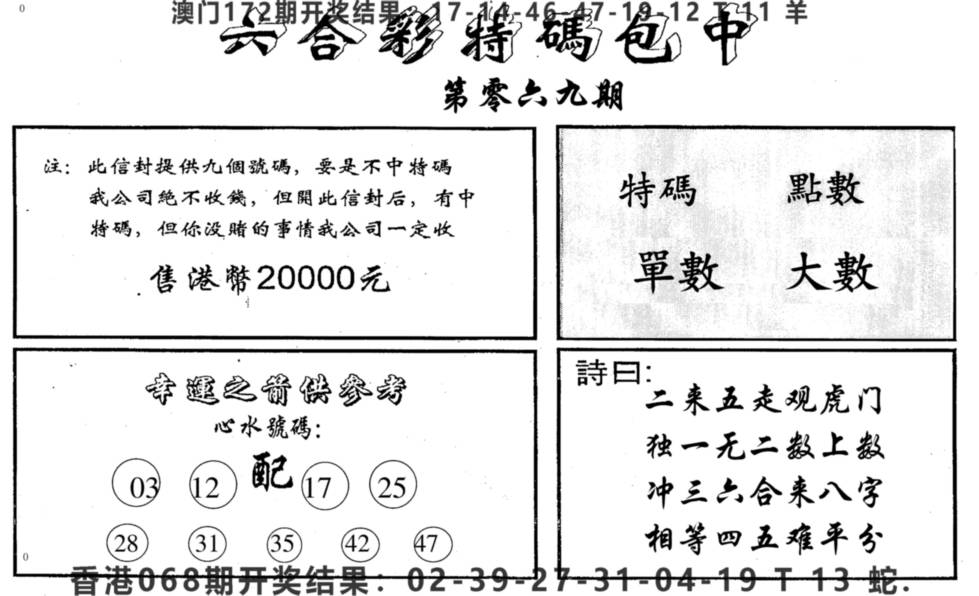 澳门172期开奖结果：17-14-46-47-19-12 T 11 羊
六合彩特碼包中
第零六九期
注：此信封提供九個號碼，要是不中特碼
我公司絶不收錢，但開此信封后，有中
特碼，但你没賭的事情我公司一定收
售港幣20000元
特碼 點數
單數 大數
幸運之箭供參考
心水號碼：
配
03 12 17 25
28 31 35 42 47
詩曰：
二来五走观虎门
独一无二数上数
冲三六合来八字
相等四五难平分
香港068期开奖结果：02-39-27-31-04-19 T 13 蛇.
0
0